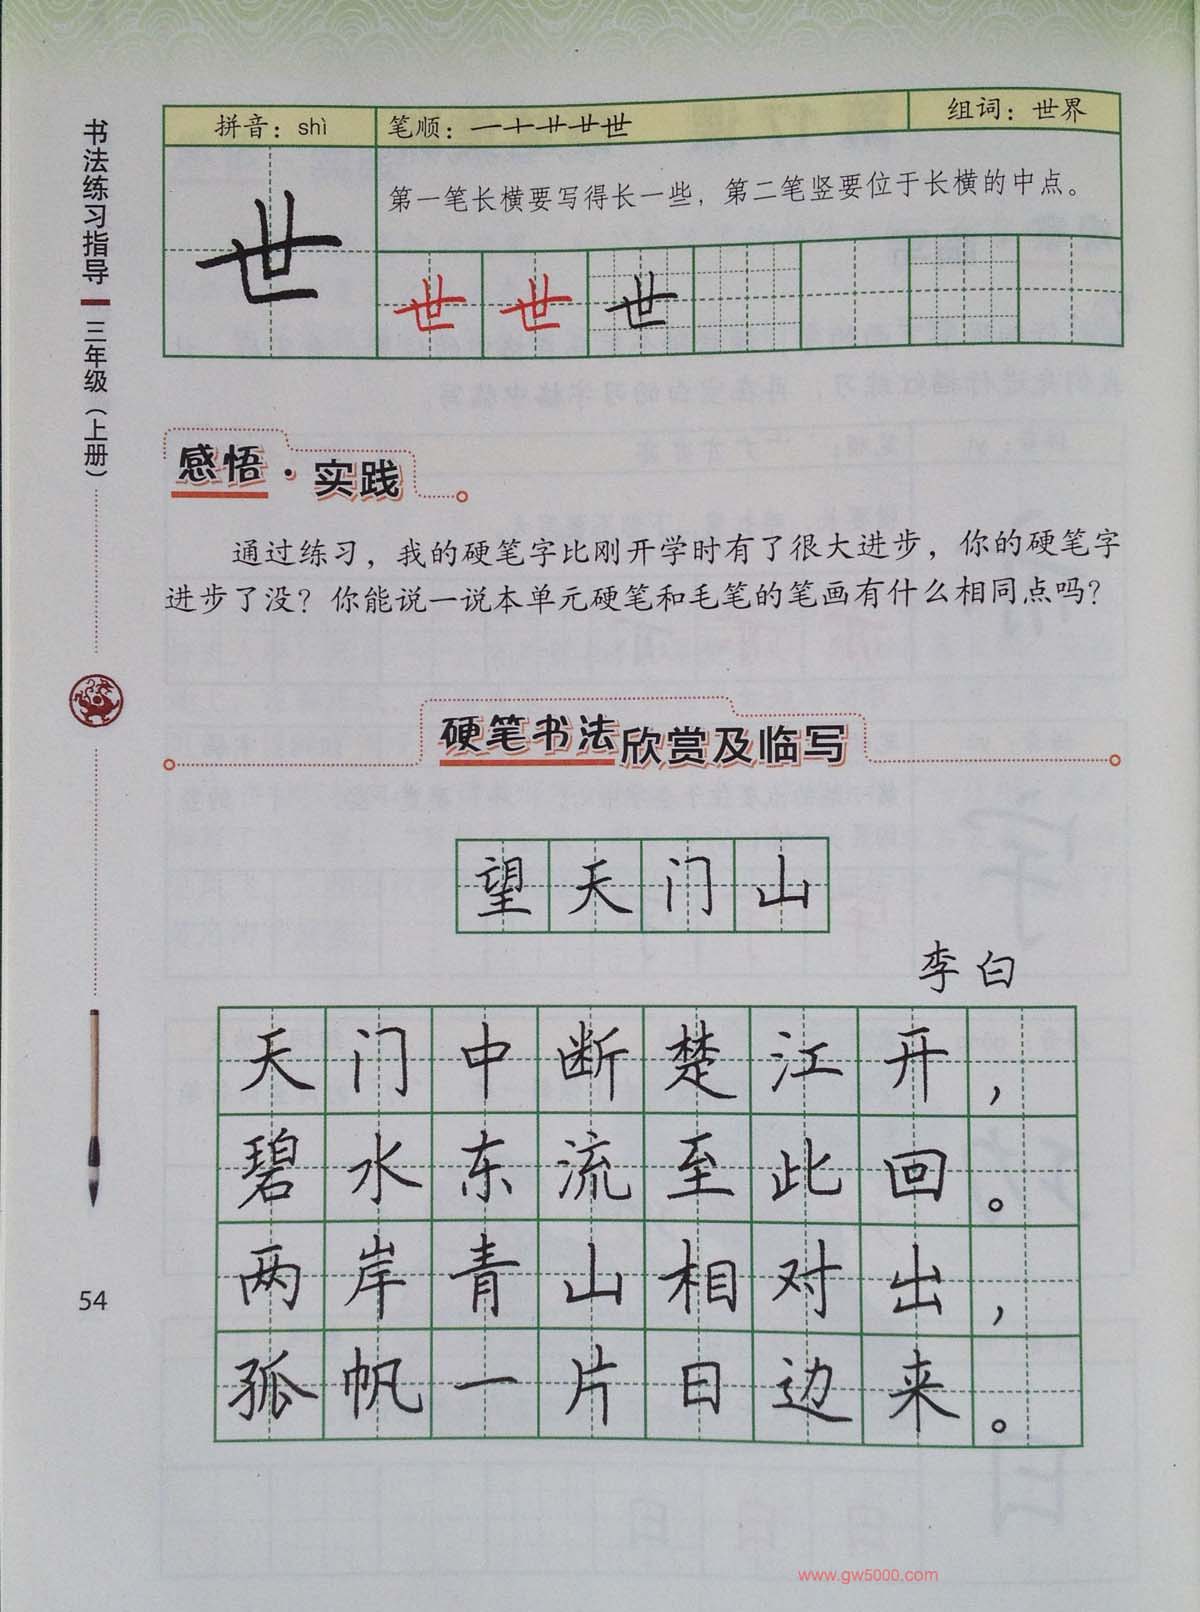 书法练习指导 三年级（上册）
拼音：shì 笔顺：一十廿廿世 组词：世界
世
第一笔长横要写得长一些，第二笔竖要位于长横的中点。
世 世 世
感悟·实践
通过练习，我的硬笔字比刚开学时有了很大进步，你的硬笔字
进步了没？你能说一说本单元硬笔和毛笔的笔画有什么相同点吗？
硬笔书法欣赏及临写
望天门山
李白
天门中断楚江开，
碧水东流至此回。
两岸青山相对出，
孤帆一片日边来。
54
www.gw5000.com